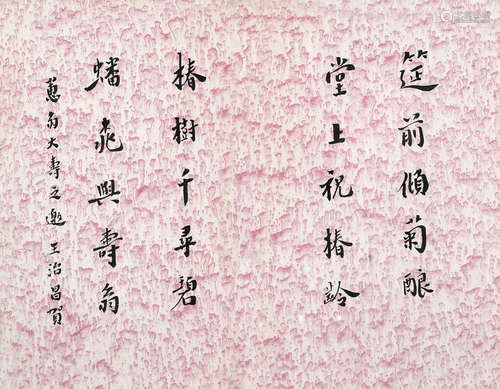 筵前傾菊釀
堂上祝椿齡
椿樹千尋碧
蟠桃興壽翁
蕙翁大壽之邀 王治昌賀